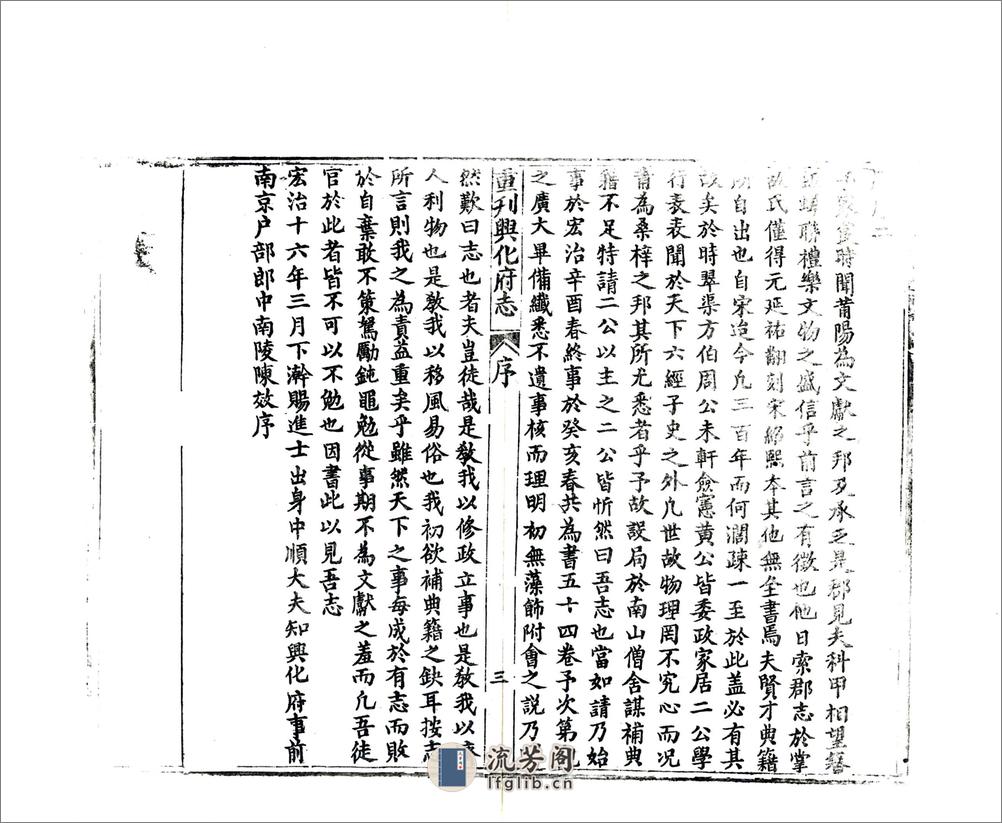 時聞莆陽為文獻之邦及承乏是郡見夫科甲相望簪
聯禮樂文物之盛信乎前言之有徵也他日索郡志於掌
故氏僅得元延祐翻刻宋紹熙本其他無全書焉夫賢才典籍
所自出也自宋迄今凡三百年而何濶疎一至於此盖必有其
故矣於時翠渠方伯周公未軒僉憲黃公皆委政家居二公學
行表表聞於天下六經子史之外凡世故物理罔不究心而况
莆為桑梓之邦其所尤悉者乎予故設局於南山僧舍謀補典
籍不足特請二公以主之二公皆忻然曰吾志也當如請乃始
事於宏治辛酉春終事於癸亥春共為書五十四卷予次第
之廣大畢備纖悉不遺事核而理明初無藻飾附會之説乃
重刊興化府志 序 三
然歎曰志也者夫豈徒哉是敎我以修政立事也是敎我以
人利物也是敎我以移風易俗也我初欲補典籍之缺耳按志
所言則我之為責益重矣乎雖然天下之事每成於有志而敗
於自棄敢不策駑勵鈍黽勉從事期不為文獻之羞而凡吾徒
官於此者皆不可以不勉也因書此以見吾志
宏治十六年三月下澣賜進士出身中順大夫知興化府事前
南京户部郎中南陵陳效序
流芳阁
lfglib.cn